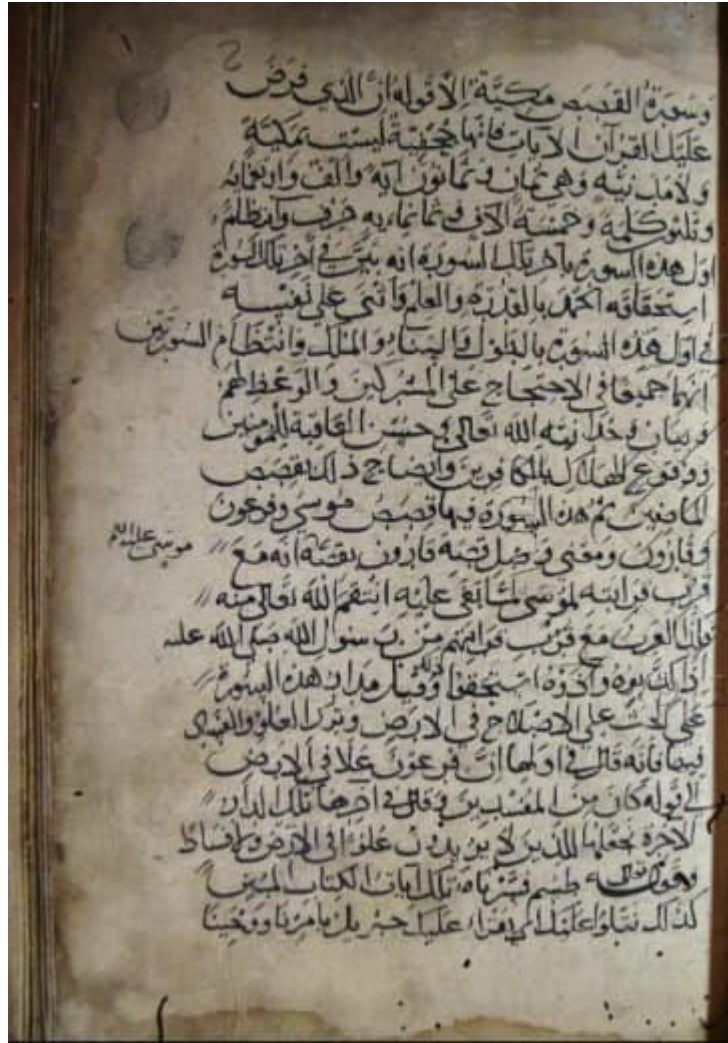 وسورة القصص مكية الا قوله ان الذي فرض
عليك القرآن الايات فانها جحفية ليست بمكية
ولا مدنية وهي ثمان وثمانون آية والف واربعمائة
كلمة وخمسة آلاف وثمانمايه حرف
اول هذه السورة بآخر تلك السورة انه بين في آخر تلك السورة
استحقاقه الحمد بالقدرة والعلم واثنى على نفسه
في اول هذه السورة بالطول والسناء والملك وانتظام السورتين
انهما جميعا في الاحتجاج على المشركين والوعظ لهم
وبيان وحدانيته الله تعالى وحسن العاقبة للمومنين
ووقوع الهلاك بالكافرين وايضاح ذلك بقصص
الماضين ثم هذه السورة فيها قصص موسى وفرعون
وقارون ومعنى وصل قصة قارون بقصته انه مع
موسى عليه السلام
قرب قرابته لموسى لما بغى عليه انتقم الله تعالى منه
فكذا العرب مع قرب قرابتهم من رسول الله صلى الله عليه
اذا كذبوه وآذوه استحقوا ذلك وقيل مدار هذه السورة
على الحث على الاصلاح في الارض وترك العلو والفساد
فيها فانه قال في اولها ان فرعون علا في الارض
الى قوله كان من المفسدين وقال في آخرها تلك الدار
الاخرة نجعلها للذين لا يريدون علوا في الارض ولا فسادا
وقوله تعالى طسم فسرناه تلك آيات الكتاب المبين
كذلك نتلوا عليك اي يقرا عليك جبريل بامرنا ووحينا